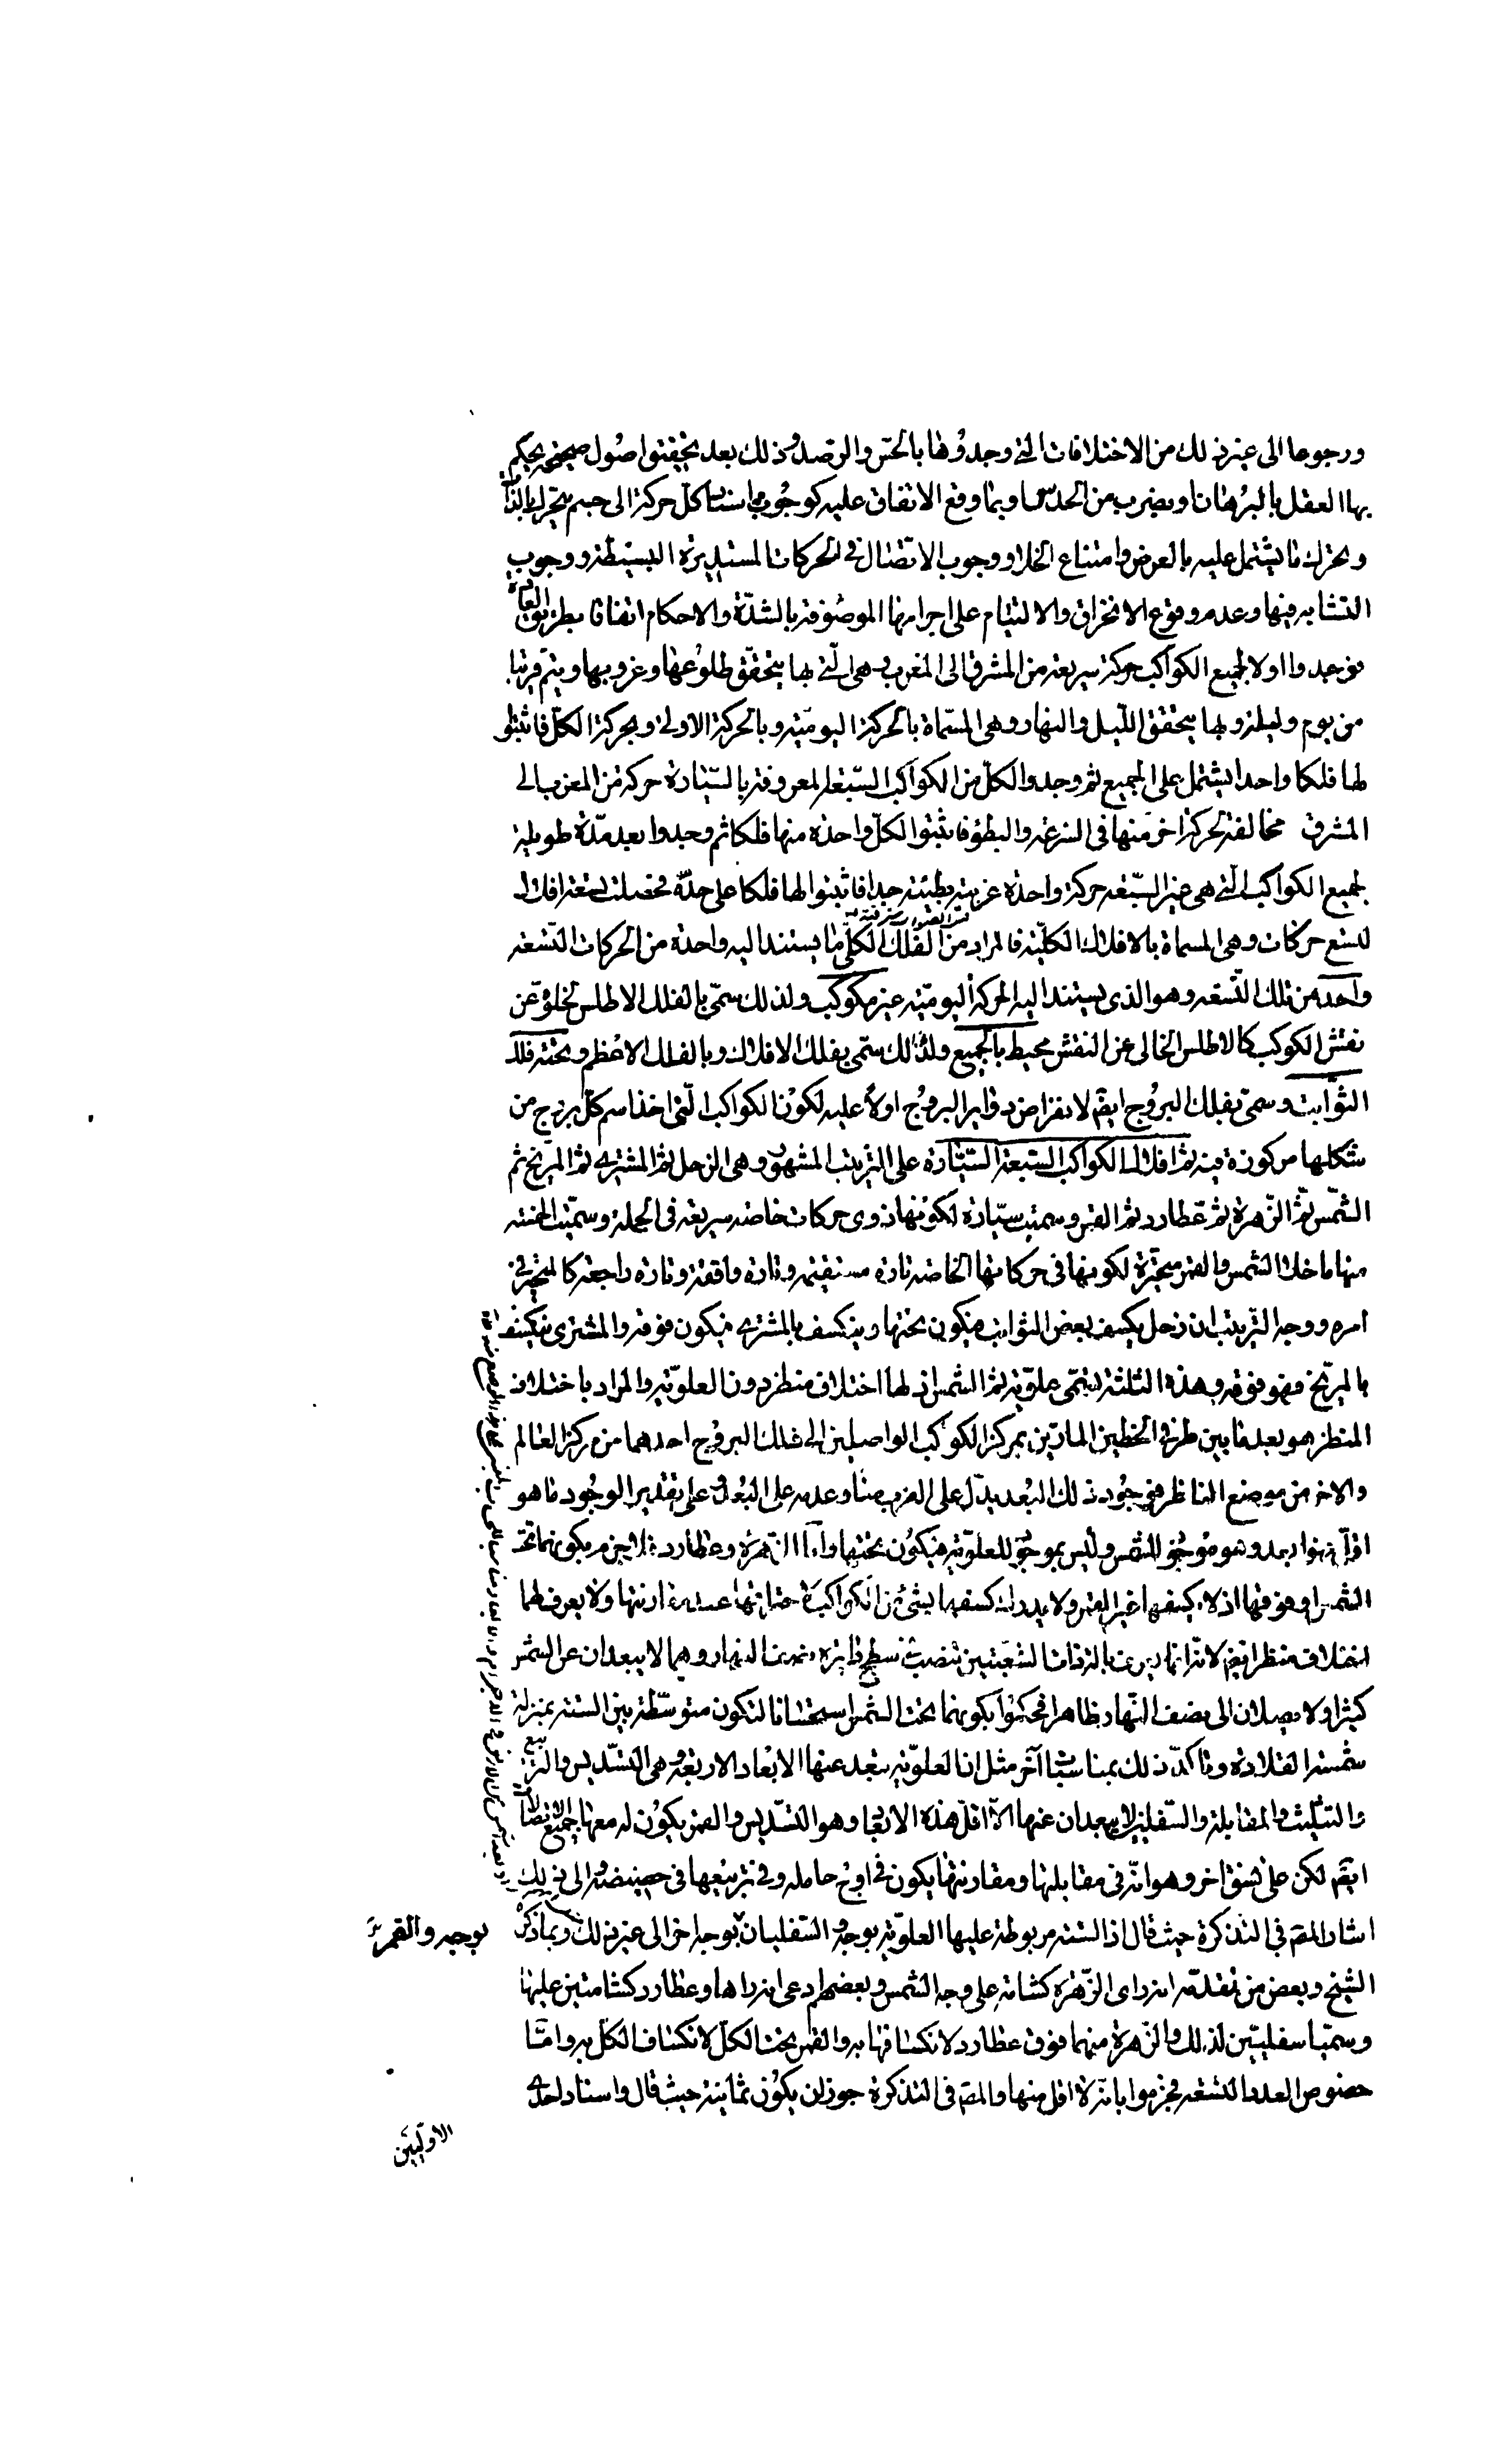 ورجوعها الى غير ذلك من الاختلافات التى وجدوها بالحسّ والرصد وذلك بعد تحقيق اصول صحيحة يحكم
بها العقل بالبرهان او بضرب من الحدس او بما وقع الاتفاق عليه كوجوب استناد كلّ حركة الى جسم يتحرّك بالذات
وتحرّك ما يشتمل عليه بالعرض وامتناع الخلاء ووجوب الاتّصال فى الحركات المستديرة البسيطة ووجوب
التشابه فيها وعدم وقوع الانخراق والالتيام على اجرامها الموصوفة بالشدّة والاحكام اتفاقا بطريق العادة
فوجدوا اولا لجميع الكواكب حركة سريعة من المشرق الى المغرب هى الّتى بها يتحقّق طلوعها وغروبها ويتم قريبا
من يوم وليلة وبها يتحقق الليل والنهار وهى المسمّاة بالحركة اليوميّة وبالحركة الاولى وبحركة الكلّ فاثبتوا
لها فلكا واحدا يشتمل على الجميع ثم وجدوا لكلّ من الكواكب السّبعة المعروفة بالسّيّارة حركة من المغرب الى
المشرق مخالفة لحركة اخر منها فى السرعة والبطؤ فاثبتوا لكلّ واحدة منها فلكا ثم وجدوا بعد مدّة طويلة
لجميع الكواكب الّتى هى غير السّبعة حركة واحدة غربية بطيئة جدا فاثبتوا لها فلكا على حدّة فحصلت تسعة افلاك
لتسع حركات وهى المسماة بالافلاك الكلّية فالمراد من الفلك الكلّى ما يستند اليه واحدة من الحركات التّسعة
واحد من تلك التّسعة وهو الذى يستند اليه الحركة اليوميّة غير مكوكب ولذلك سمّى بالفلك الاطلس لخلوّه عن
نقش الكوكب كالاطلس الخالى عن النقش محيط بالجميع ولذلك سمّى بفلك الافلاك وبالفلك الاعظم وتحته فلك
الثوابت وسمى بفلك البروج ايضم لانفراض دواير البروج اولا عليه لكون الكواكب الّتى اخذ اسم كلّ برج من
شكلها مركوزة فيه ثم افلاك الكواكب السّبعة السّيّارة على الترتيب المشهور وهى الزحل ثم المشترى ثم المرّيخ ثم
الشّمس ثمّ الزّهرة ثم عطارد ثم القمر وسميت سيّارة لكونها ذوى حركات خاصه سريعة فى الجملة وسمّيت الخمسة
منها ما خلا الشمس والقمر متحيّرة لكونها فى حركاتها الخاصه تارة مستقيمة وتارة واقفة وتارة راجعة كالمتحير فى
امره ووجه الترتيب ان زحل يكسف بعض الثوابت فيكون تحتها وينكسف بالمشترى فيكون فوقه والمشترى ينكسف
بالمرّيخ فهو فوقه وهذه الثلثة تسمّى علويّة ثم الشمس اذ لها اختلاف منظر دون العلويّة والمراد باختلاف
المنظر هو بعد ما بين طرفى الخطين المارّين بمركز الكوكب الواصلين الى فلك البروج احدهما من مركز العالم
والاخر من موضع الناظر فوجود ذلك البُعد يدلّ على القرب منا وعدمه على البُعد على تقدير الوجود فما هو
اقلّ فهو ابعد وهو موجود للشمس وليس بموجود للعلويّة فيكون تحتها وامّا الزّهرة وعطارد فلا جزم بكونهما تحت
الشمس او فوقها اذ لا يكسفها غير القمر ولا يدرك كسفها لشىء من الكواكب ولا يعرف لهما
اختلاف منظر ايضم لانّه انما يعرف بالة ذات الشعبتين تنصب فى سطح دايره نصف النهار وهما لا يبعدان عن الشمس
كثيرا ولا يصلان الى نصف النّهار ظاهرا فحكموا بكونهما تحت الشمس استحسانا لتكون متوسّطة بين الستة بمنزلة
شمسة القلادة وتاكّد ذلك بمناسبات آخر مثل ان العلويّة تبعد عنها الابعاد الاربعة وهى التسّديس والتربيع
والتثليث والمقابلة والسّفليين لا يبعدان عنها الا اقل هذه الابعاد وهو التسديس والقمر يكون له معها جميع الاتصالات
ايضم لكن على نسق اخر وهو انّه فى مقابلتها ومقارنتها يكون فى اوج حامله وفى تربيعها فى حضيضه والى ذلك
اشار المصم فى التذكرة حيث قال اذ الستة مربوطة عليها العلويّة بوجه والسّفليان بوجه اخر الى غير ذلك وبما ذكره
بوجه والقمر
الشيخ وبعض من تقدّمه انه راى الزّهرة كشامة على وجه الشمس وبعضهم ادعى انه راها وعطارد كشامتين عليها
وسميّا سفليّين لذلك والزّهرة منهما فوق عطارد لانكسافها به والقمر تحت الكلّ لانكساف الكلّ به وامّا
خصوص العدد التسعة فجزموا بانّه لا اقل منها والمصم فى التذكرة جوز ان يكون ثمانية حيث قال واسناد احدى
الاوليين